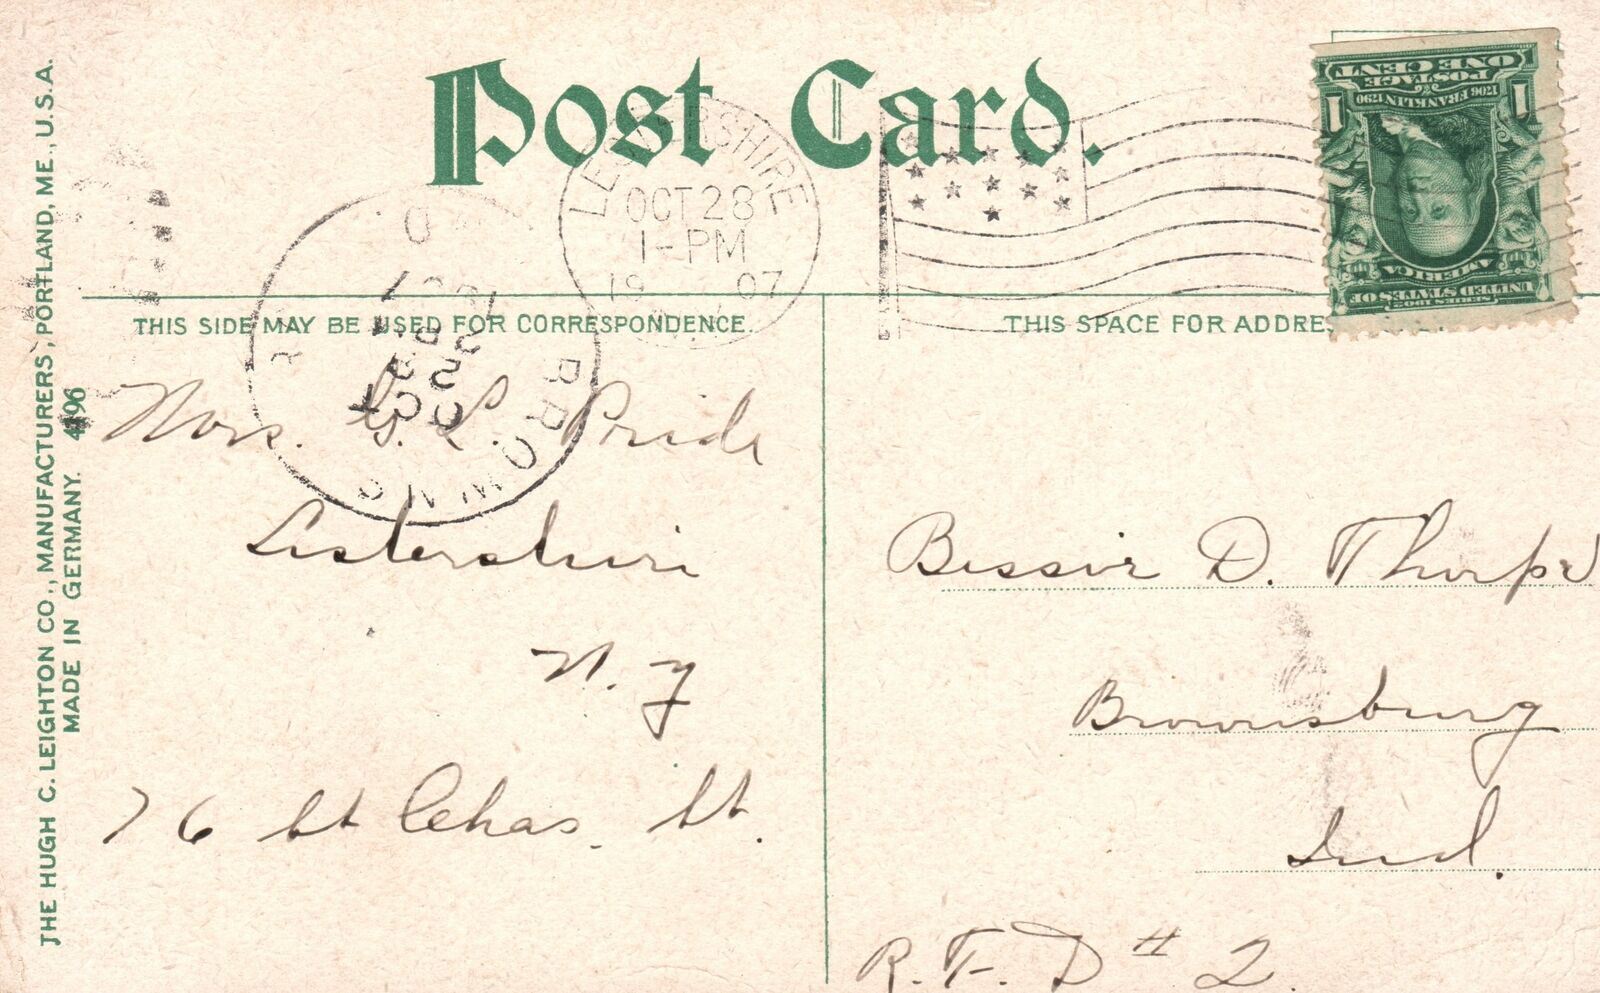 Post Card.
LESTERSHIRE
OCT 28
1-PM
1907
1706 FRANKLIN 1790
POSTAGE
ONE CENT
1 1
SERIES 1902
UNITED STATES OF
AMERICA
THIS SIDE MAY BE USED FOR CORRESPONDENCE.
THIS SPACE FOR ADDRE
BROWNS
OCT
Mrs. G. L. Pride
Lestershire
N. Y
76 St Chas. St.
Bessie D. Thorpe
Brownsburg
Ind.
R. F. D # 2.
THE HUGH C. LEIGHTON CO., MANUFACTURERS, PORTLAND, ME., U.S.A.
MADE IN GERMANY. 4196